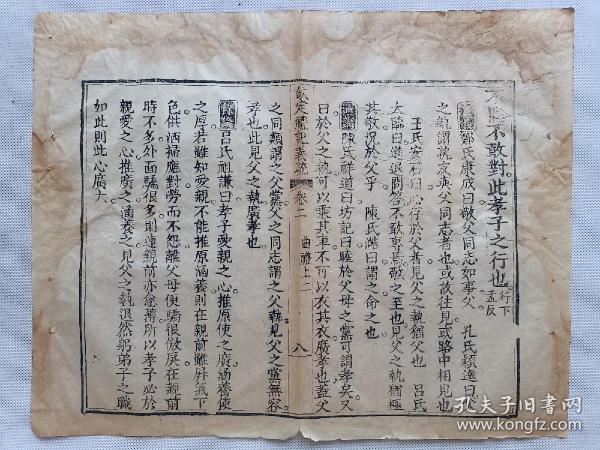 不敢對此孝子之行也行下孟反
鄭氏康成曰敬父同志如事父 孔氏穎達曰父
之執謂執友與父同志者也或故往見或路中相見也
王氏安石曰心存於父者見父之執猶父也 呂氏
大臨曰進退問答不敢專焉敬之至也見父之執猶極
其敬況於父乎 陳氏澔曰謂之命之也
陳氏祥道曰坊記曰睦於父母之黨可謂孝矣又
曰於父之執可以乘其車不可以衣其衣廣孝也蓋父
欽定禮記義疏 卷二 曲禮上二 八
之同類謂之父黨父之同志謂之父執見父之黨無容
孝也此見父之執廣孝也
呂氏祖謙曰孝子愛親之心推原使之廣涵養使
之厚若雖知愛親不能推原涵養則在親前雖屏氣下
色供洒掃應對勞而不怨離父母便驕很倣戾在親前
時不多外面驕很多則連親前亦怠薄所以孝子必於
親愛之心推廣之涵養之見父之執退然躬弟子之職
如此則此心廣大
孔夫子旧书网
www.kongfz.com